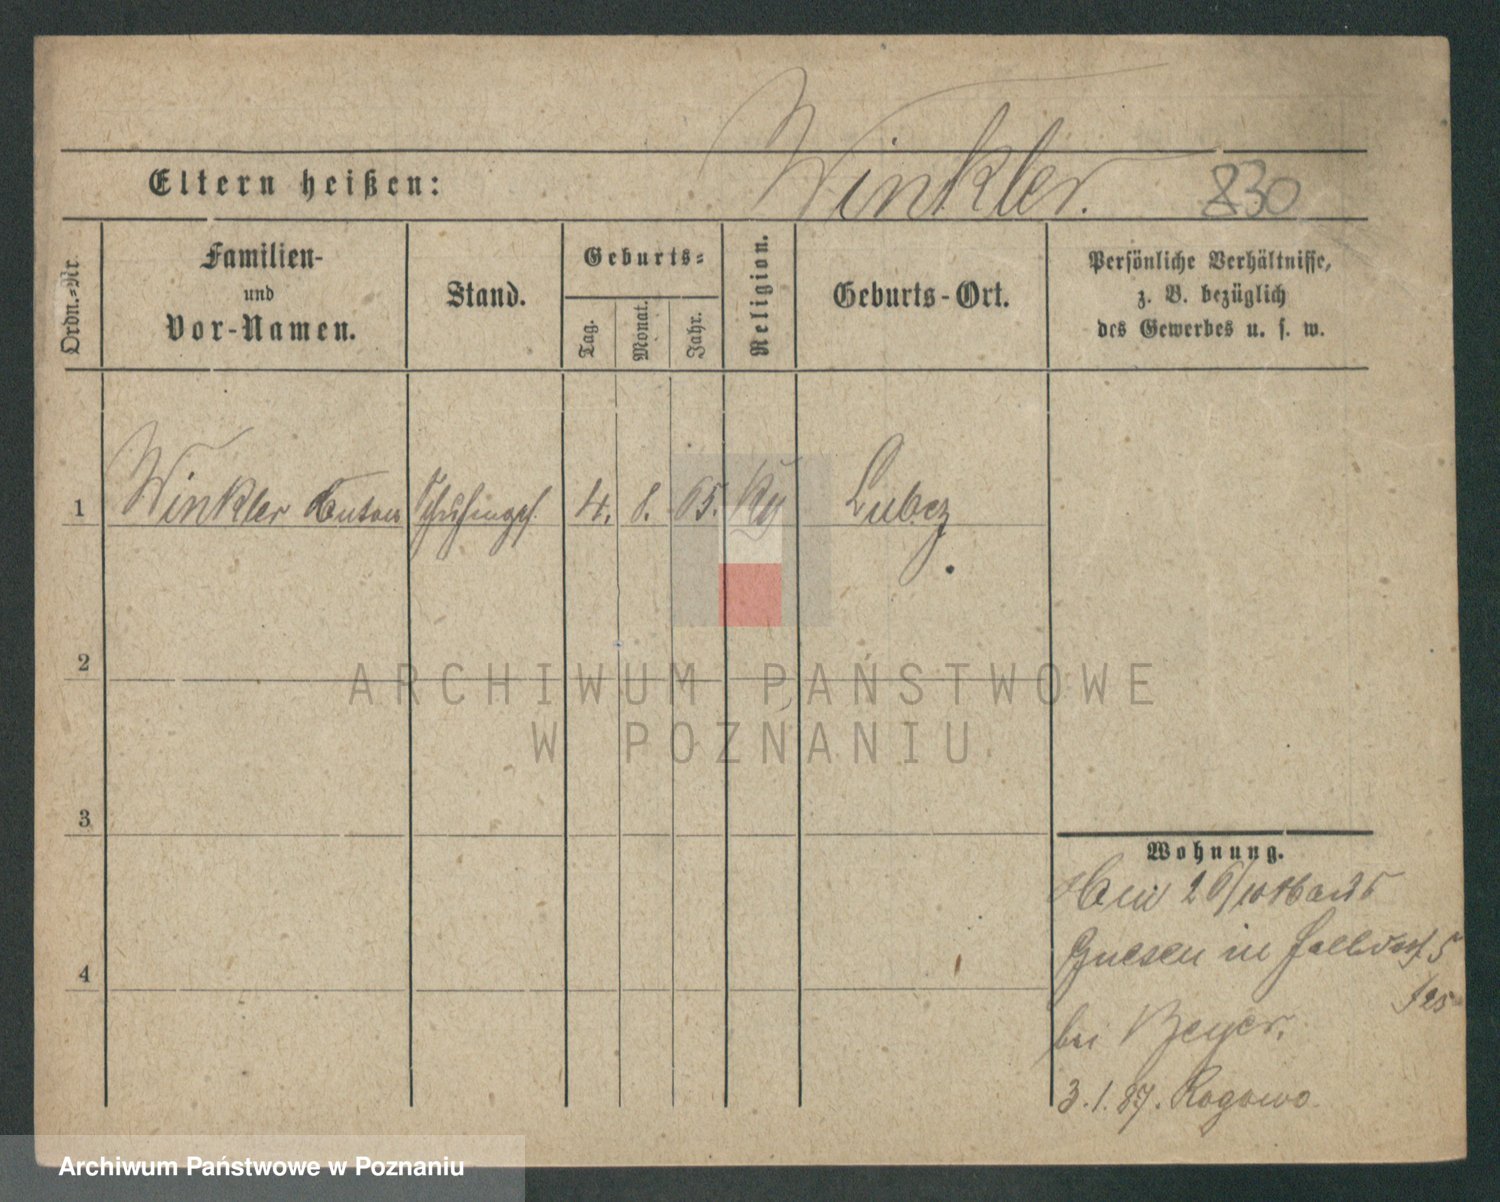 Winkler. 830
Eltern heißen:
Ordn.-Nr.
Familien-
und
Vor-Namen.
Stand.
Geburts-
Tag.
Monat.
Jahr.
Religion.
Geburts-Ort.
Persönliche Verhältnisse,
z. B. bezüglich
des Gewerbes u. s. w.
1 Winkler Anton 4. 8. 65. Lubcz
2
3
4
Wohnung.
Gnesen in
bei Beyer.
3.1.87. Rogowo
ARCHIWUM PAŃSTWOWE
W POZNANIU
Archiwum Państwowe w Poznaniu